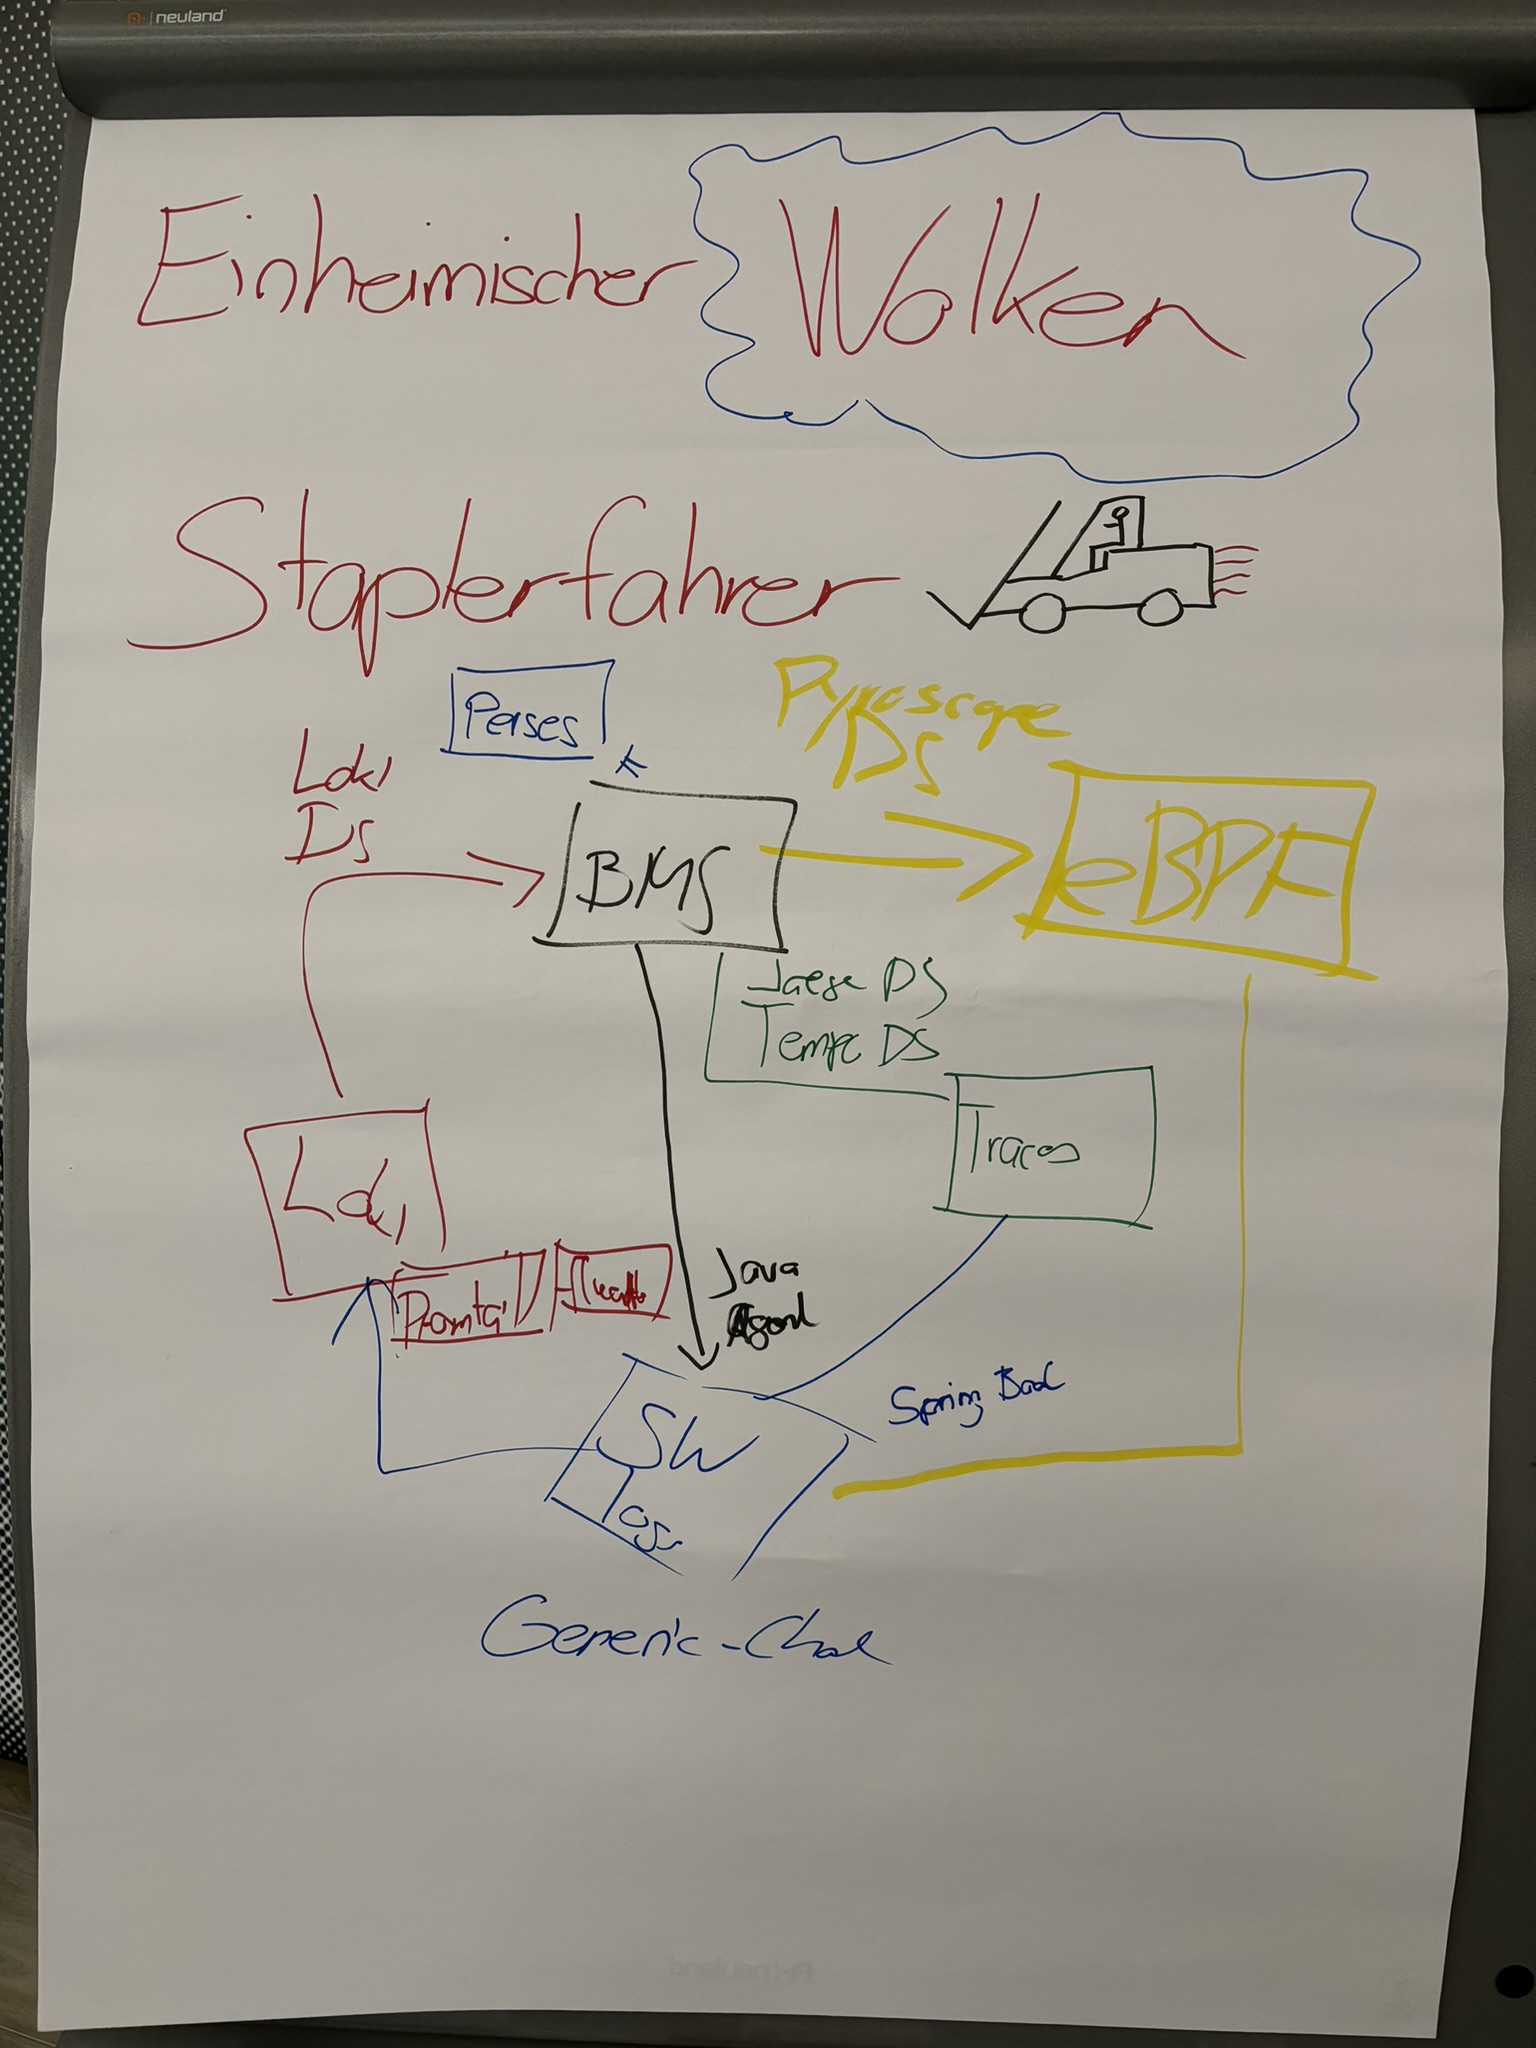 neuland
Einheimischer Wolken
Staplerfahrer
Perses
Pyroscope
DS
Loki
DS
BMS
eBPF
Jaeger DS
Tempo DS
Traces
Loki
Promtail
Java
Agent
Spring Boot
SW
Generic-Chart